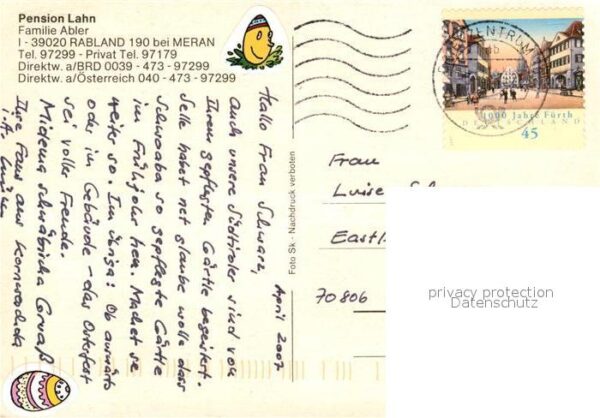 Pension Lahn
Familie Abler
I - 39020 RABLAND 190 bei MERAN
Tel. 97299 - Privat Tel. 97179
Direktw. a/BRD 0039 - 473 - 97299
Direktw. a/Österreich 040 - 473 - 97299
April 2007
Hallo Frau Schwarz,
auch unsere Südtiroler sind von
Ihrem gepflegten Gärtle begeistert.
Selle habet net glaube wolle dass
Schwoaba so gepflegte Gärtle
im Frühjohr hen. Machet se
weiter so. Im übriga: Ob auswärts
oder im Gebäude - das Osterfest
sei voller Freude.
Mit schwäbischa Gruaß
Ihre Fans aus Kornwestheim
Foto Sk · Nachdruck verboten
1000 Jahre Fürth
DEUTSCHLAND
45
Frau
Luise
70806
privacy protection
Datenschutz